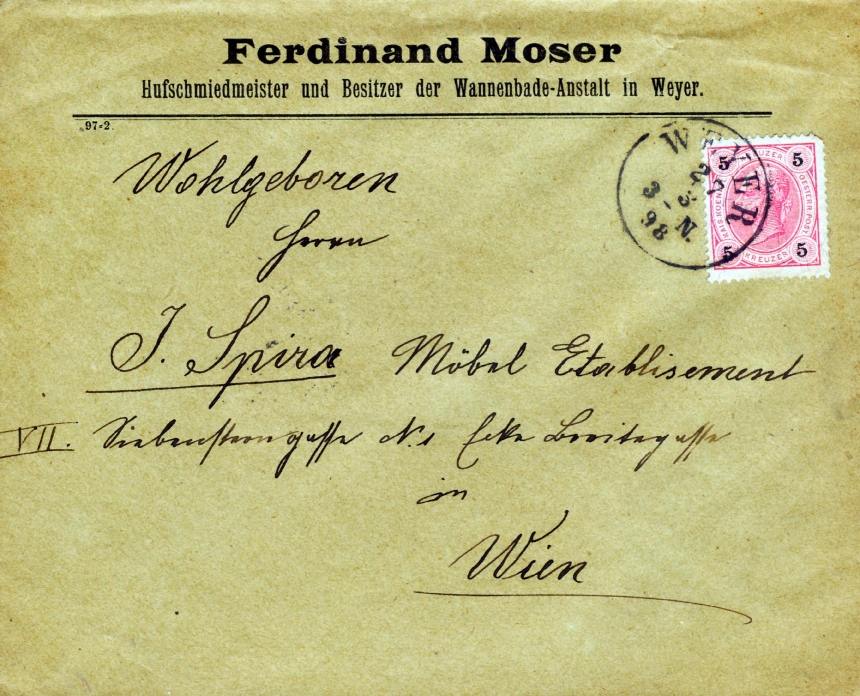 Ferdinand Moser
Hufschmiedmeister und Besitzer der Wannenbade-Anstalt in Weyer.
97-2.
WEYER
27
3
98
3-N.
5 5
KREUZER
KAIS. KOENIGL. OESTERR. POST
KREUZER
5 5
Wohlgeboren
Herrn
J. Spira Möbel Etablisement
VII. Siebensterngasse No 1 Ecke Breitegasse
in
Wien